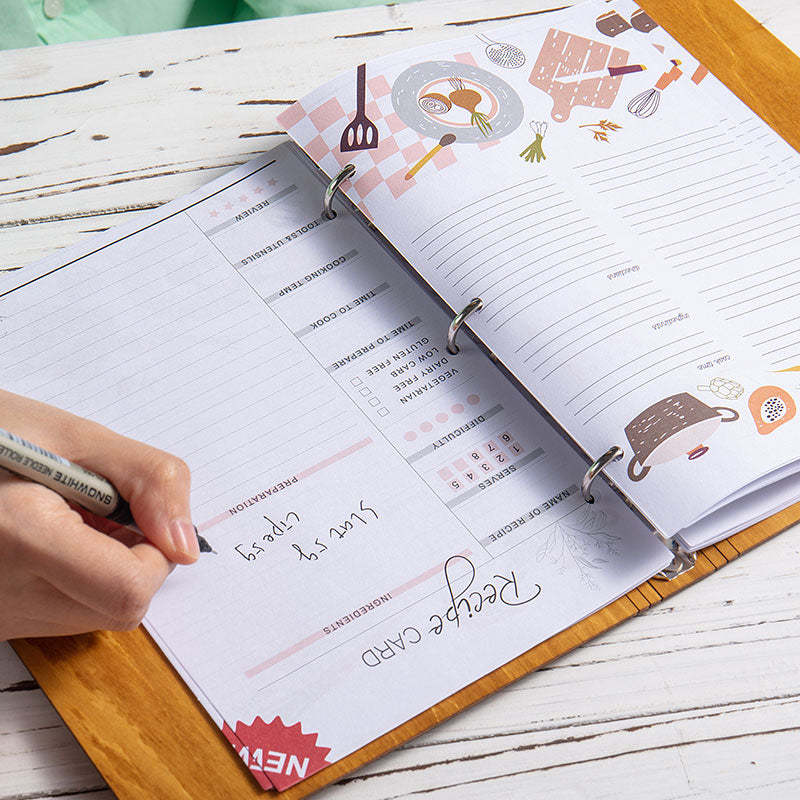 Recipe CARD
NAME OF RECIPE
SERVES
1 2 3 4 5
6 7 8
DIFFICULTY
VEGETARIAN
DAIRY FREE
LOW CARB
GLUTEN FREE
TIME TO PREPARE
TIME TO COOK
COOKING TEMP
TOOLS& UTENSILS
REVIEW
INGREDIENTS
PREPARATION
NEW
cook time
directions
SNOWHITE NEEDLE ROLLE